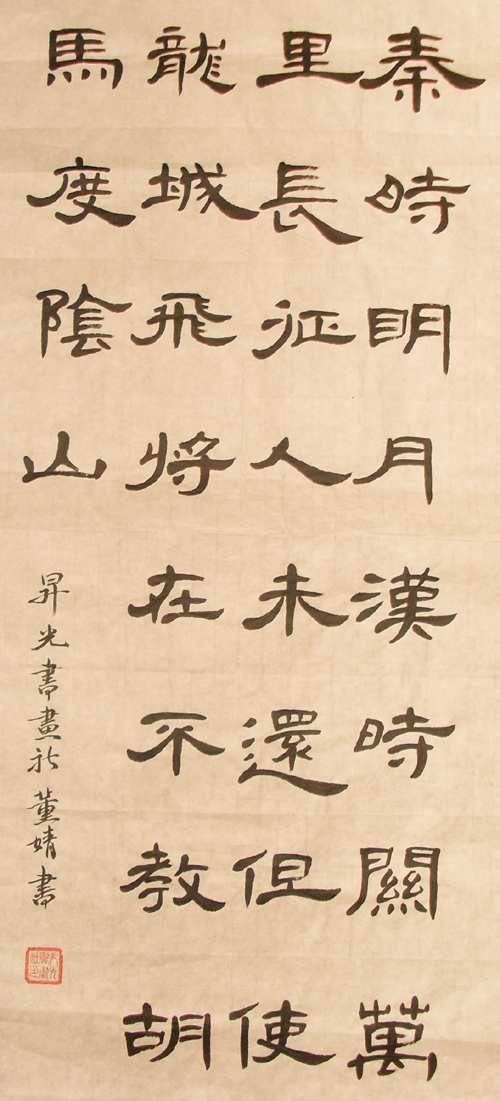 秦時明月漢時關萬
里長征人未還但使
龍城飛将在不教胡
馬度陰山
昇光書畫社董婧書